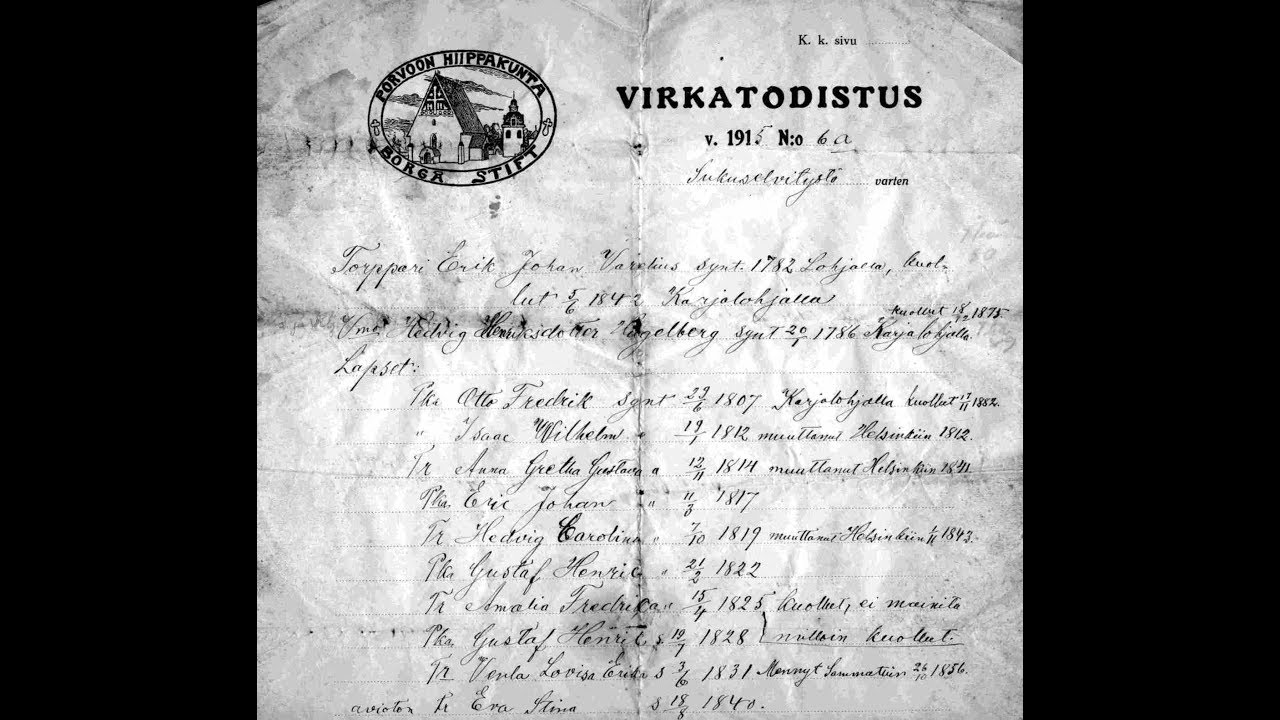 K. k. sivu
PORVOON HIIPPAKUNTA
BORGÅ STIFT
VIRKATODISTUS
v. 1915 N:o 6a
Sukuselvitystä varten
Torppari Erik Johan Varelius synt. 1782 Lohjalla, kuol-
lut 5/6 1842 Karjalohjalla
kuollut 1875
Vmo Hedvig Henriksdotter Högelberg synt 20/1 1786 Karjalohjalla
Lapset:
Pka Otto Fredrik synt 22/6 1807 Karjalohjalla kuollut 17/11 1882.
" Isaac Wilhelm " 19/1 1812 muuttanut Helsinkiin 1812.
Tr Anna Gretha Gustava 12/11 1814 muuttanut Helsinkiin 1841
Pka Eric Johan " 11/3 1817
Tr Hedvig Carolina " 7/10 1819 muuttanut Helsinkiin 1/11 1843.
Pka Gustaf Henric " 21/2 1822
Tr Amalia Fredrika " 15/4 1825 kuollut, ei mainita
Pka Gustaf Henric s 19/7 1828 milloin kuollut.
Tr Venla Lovisa Erika s 3/6 1831 Mennyt Sammatiin 26/10 1856.
avioton Tr Eva Stina s 18/8 1840.